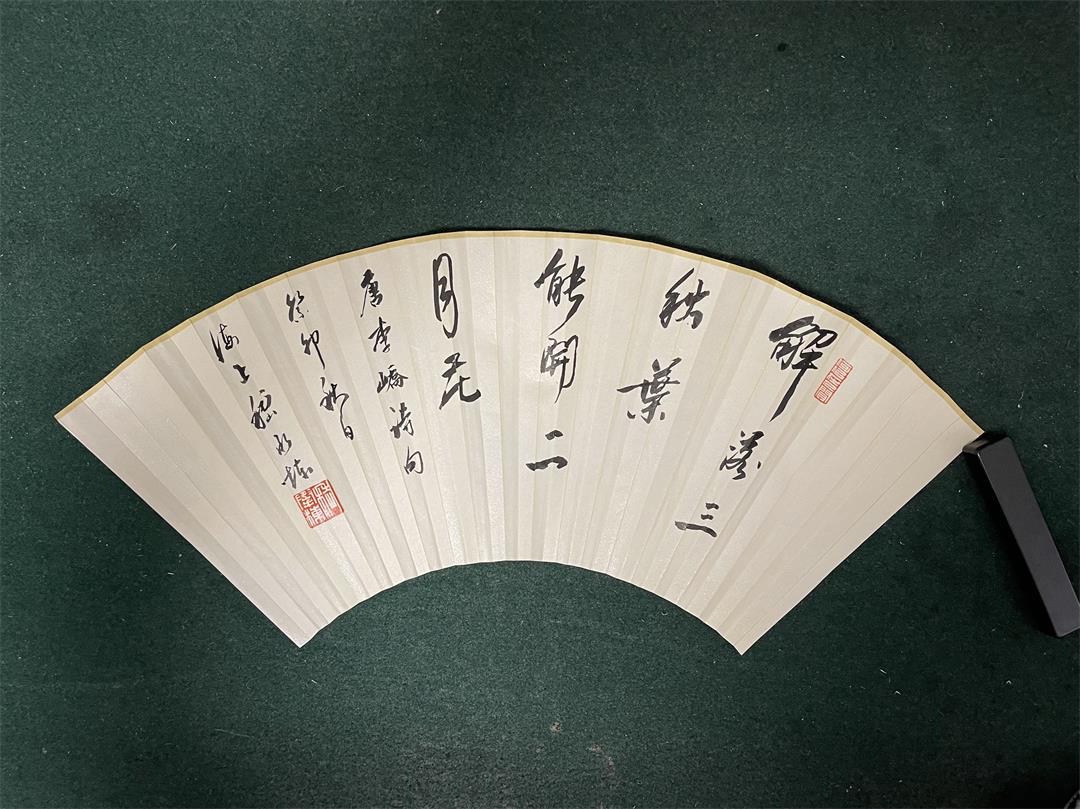 解落三
秋葉
能開二
月花
唐李嶠詩句
癸卯秋日
海上